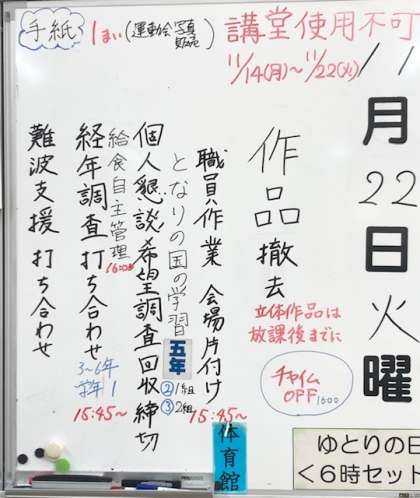 手紙 1まい(運動会写真販売)
講堂使用不可
11/14(月)~11/22(火)
月22日火曜
作品撤去
立体作品は
放課後までに
チャイム
OFF 1600
職員作業 会場片付け
15:45~
体育館
となりの国の学習
五年
② 1組
③ 2組
個人懇談希望調査回収締切
給食自主管理
16:00
経年調査打ち合わせ
3~6年
学年 1
15:45~
難波支援打ち合わせ
ゆとりの日
<6時セット